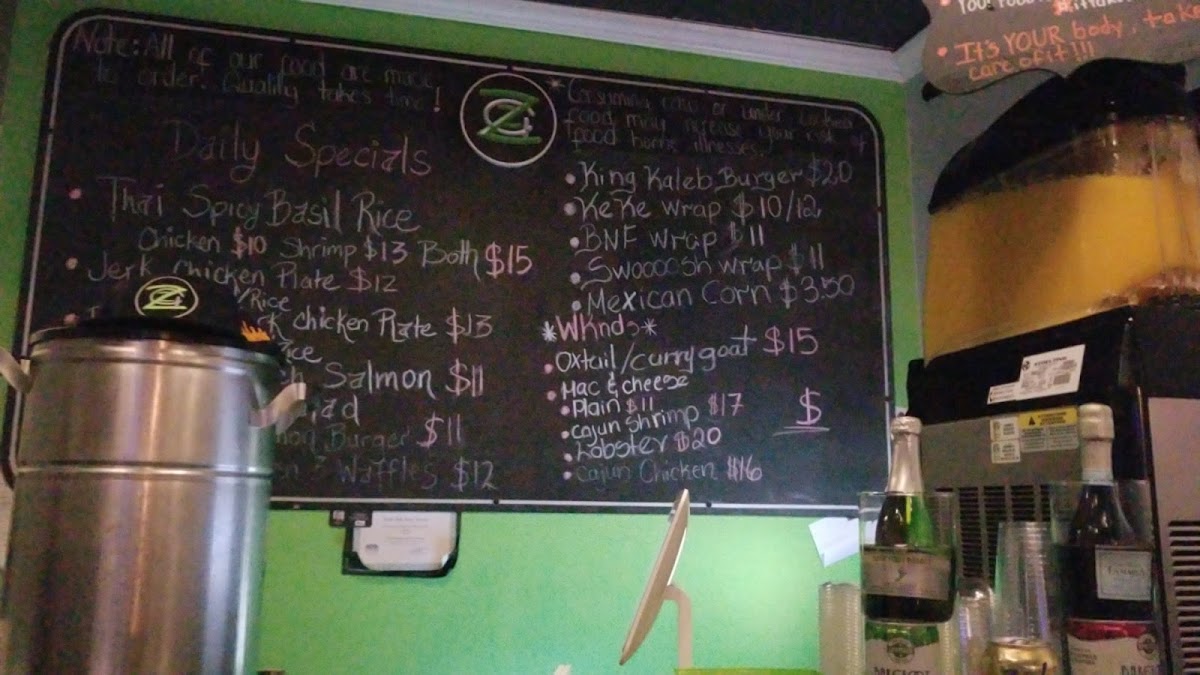 Note: All of our food are made
to order. Quality takes time!
Daily Specials
• Thai Spicy Basil Rice
Chicken $10 Shrimp $13 Both $15
• Jerk chicken Plate $12
/Rice
chicken Plate $13
Salmon $11
Burger $11
Waffles $12
*Consuming raw or under cooked
food may increase your risk of
food borne illnesses.
• King Kaleb Burger $20
• KeKe Wrap $10/12
• BNF Wrap $11
• Swoooosh wrap $11
• Mexican Corn $3.50
*WKnds*
• Oxtail/curry goat $15
• Mac & cheese
• Plain $11
• Cajun Shrimp $17
• Lobster $20
• Cajun Chicken $16
$
• It's YOUR body, take
care of it!!!